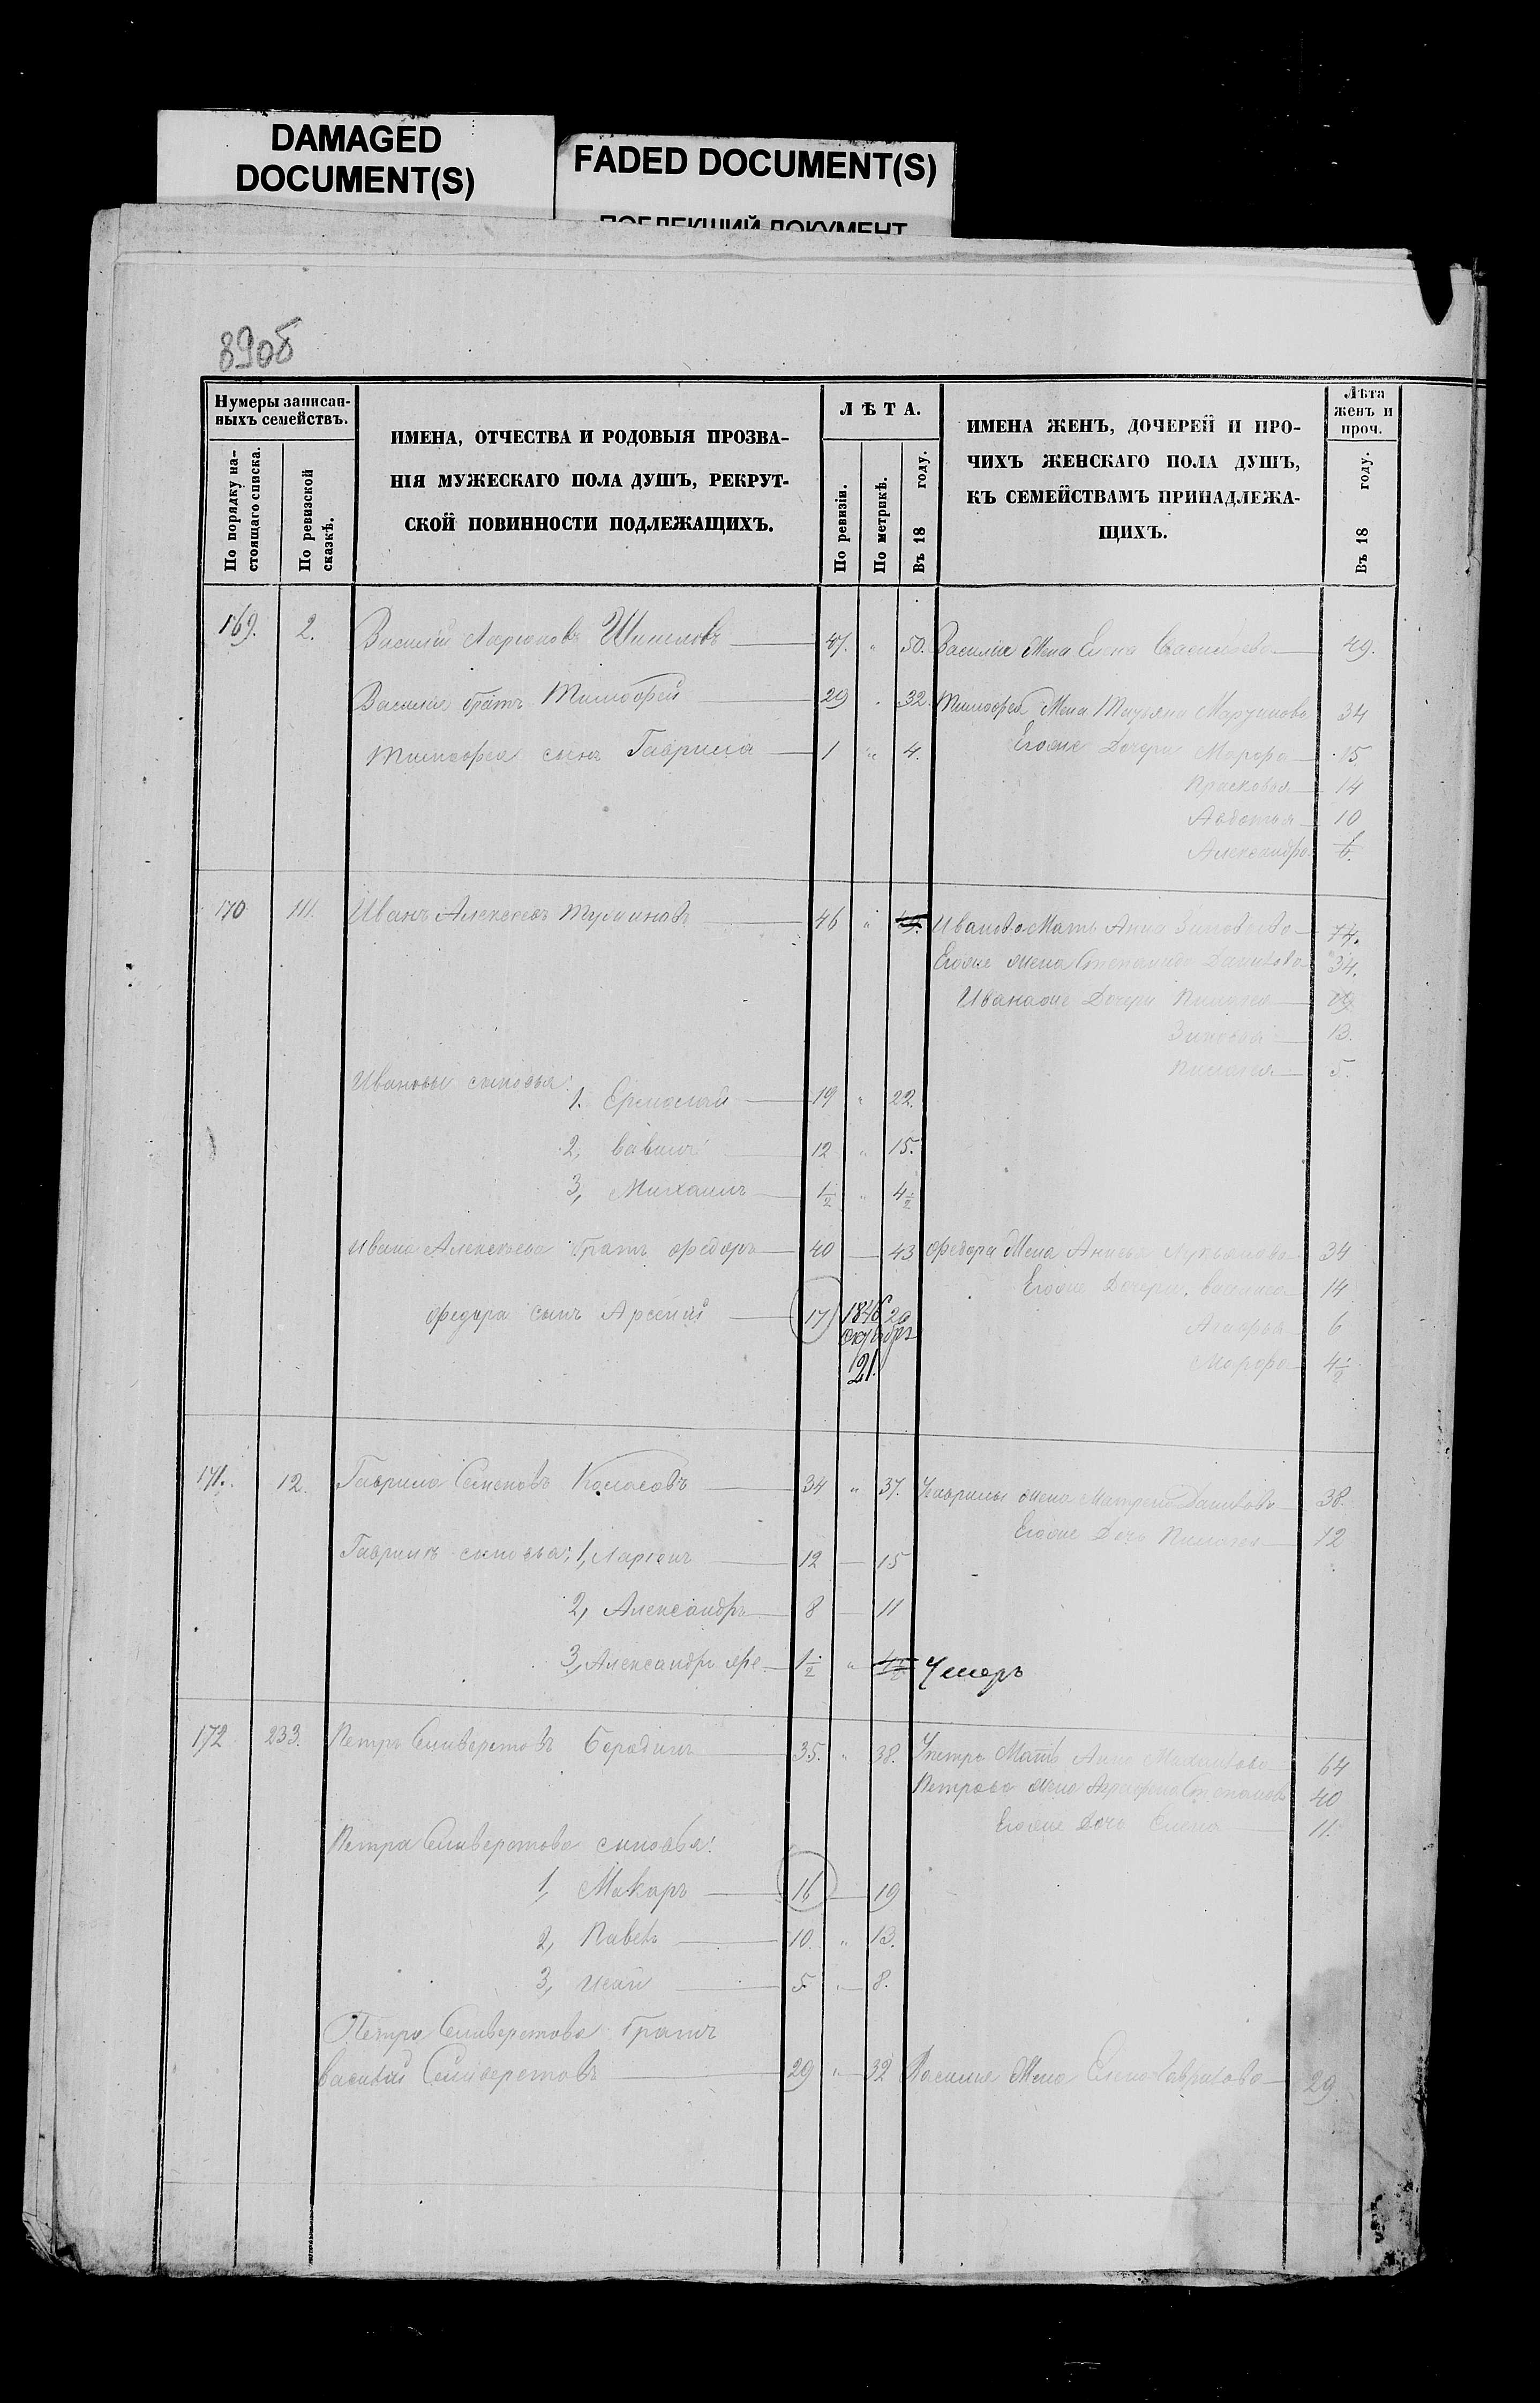 DAMAGED
DOCUMENT(S)
FADED DOCUMENT(S)
ПОБЛЕКШИЙ ДОКУМЕНТ
89об
Нумеры записан-
ныхъ семействъ.
По порядку на-
стоящаго списка.
По ревизской
сказкѣ.
ИМЕНА, ОТЧЕСТВА И РОДОВЫЯ ПРОЗВА-
НІЯ МУЖЕСКАГО ПОЛА ДУШЪ, РЕКРУТ-
СКОЙ ПОВИННОСТИ ПОДЛЕЖАЩИХЪ.
ЛѢТА.
По ревизіи.
По метрикѣ.
Въ 18 году.
ИМЕНА ЖЕНЪ, ДОЧЕРЕЙ И ПРО-
ЧИХЪ ЖЕНСКАГО ПОЛА ДУШЪ,
КЪ СЕМЕЙСТВАМЪ ПРИНАДЛЕЖА-
ЩИХЪ.
Лѣта
женъ и
проч.
Въ 18 году.
169. 2. Василій Ларіоновъ 47. " 50. Василія Жена Елена Васильева 49.
Василія братъ Тимофей 29 " 32. Тимофея Жена Татьяна Мартинова 34
Тимофея сынъ Гаврила 1 " 4. Егоже Дочери Марфа 15
Прасковья 14
Авдотья 10
Александра 6.
170 111. Иванъ Алексеевъ 46 " Иванова Мать Анна 74.
Егоже жена Степанида Данилова 34.
Иванаже Дочери Пилагея
13.
Пилагея 5.
Ивановы сыновья:
1. Ермолай 19 " 22.
2, 12 " 15.
3, Михаилъ 1½ " 4½
Ивана Алексѣева братъ Федоръ 40 43 Федора Жена Анисья Лукьянова 34
Егоже Дочери Василиса 14
Федора сынъ Арсеній 17 1846 20
октябрь
21.
Агафья 6
Марфа 4½
171. 12. Гаврила Семеновъ Колосовъ 34 " 37. Гаврилы жена Матрена Данилова 38.
Егоже Дочь Пилагея 12
Гаврилы сыновья: 1, Ларіонъ 12 15
2, Александръ 8 11
3, Александръ 1½ " Умеръ
172 233. Петръ Селиверстовъ Бородинъ 35. " 38. Мать Анна 64
Петрова жена Аграфена Степанова 40
Егоже Дочь Елена 11.
Петра Селиверстова сыновья:
1, Макаръ 16 19
2, Павелъ 10. " 13.
3, Исай 5 8.
Петра Селиверстова братъ
Василій Селиверстовъ 29 " 32 Василья Жена Елена Гаврилова 29